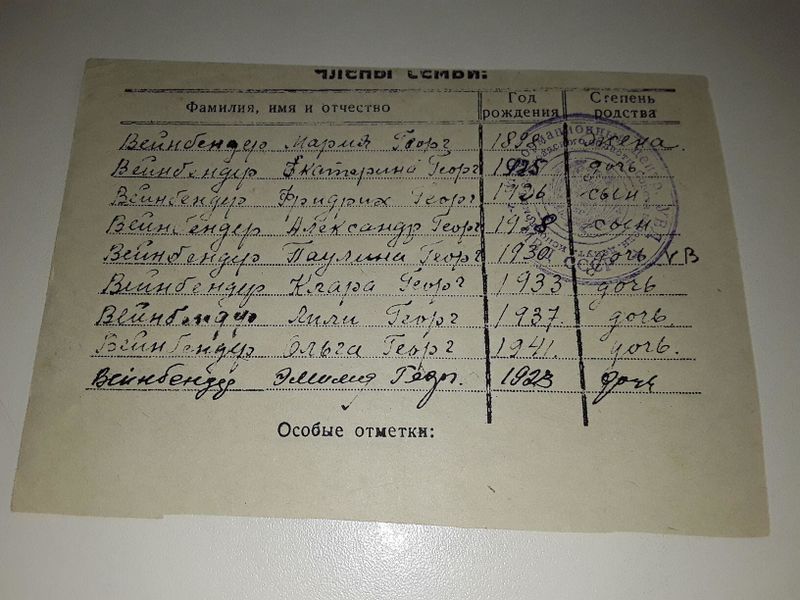 Члены семьи:
Фамилия, имя и отчество Год рождения Степень родства
Вейнбендер Мария Георг жена.
Вейнбендер Екатерина Георг 1925 дочь
Вейнбендер Фридрих Георг 1926 сын
Вейнбендер Александр Георг 1928 сын
Вейнбендер Паулина Георг 1930 дочь
Вейнбендер Клара Георг 1933 дочь
Вейнбендер Лили Георг 1937 дочь
Вейнбендер Ольга Георг 1941. дочь.
Вейнбендер Эмилия Георг. 1923 дочь
Особые отметки: